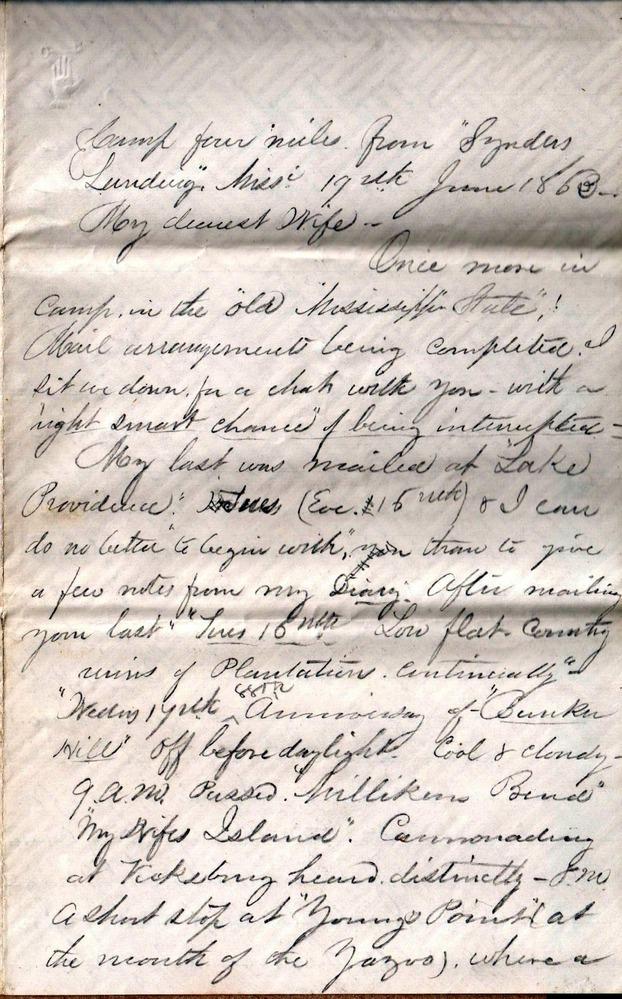 Camp four miles from "Synders
Landing". Miss: 19nth June 1863-
My dearest Wife-
Once more in
Camp, in the "old Mississippi State",!
Mail arrangements being completed. I
sit me down, for a chat with you - with a
"right smart chance" of being interrupted-
My last was mailed at "Lake
Providence". (Eve. 16nth) & I can
do no better "to begin with", than to give
a few notes from my Diary. After mailing
your last" "Tues 16nth Low flat Country
ruins of Plantation. Continually"-
"Weds 17nth 88th Anniversay of "Bunker
Hill" Off before daylight. Cool & cloudy-
9 a.m. Passed. "Millikens Bend"
"My Wifes Island". Cannonading
at Vicksburg heard distinctly -
A short stop at "Youngs Point" (at
the mouth of the Yazoo), where a